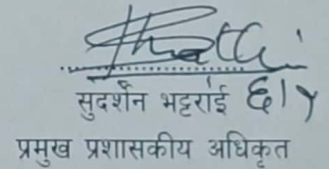 सुदर्शन भट्टराई ६।५
प्रमुख प्रशासकीय अधिकृत